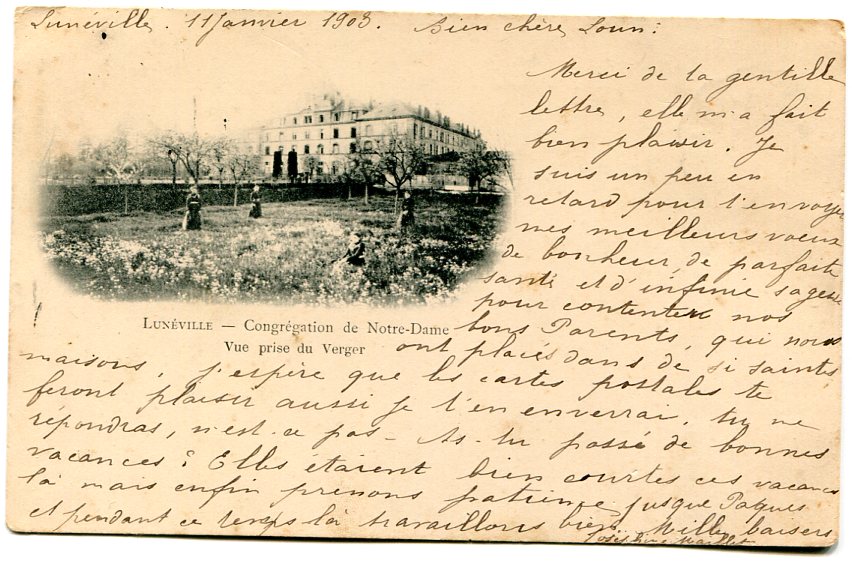 Lunéville. 11 Janvier 1903. Bien chère Loun:
Merci de ta gentille
lettre, elle m'a fait
bien plaisir. Je
suis un peu en
retard pour t'envoyer
mes meilleurs vœux
de bonheur, de parfaite
santé et d'infinie sagesse
pour contenter nos
bons Parents, qui nous
ont placés dans de si saintes
maisons, j'espère que les cartes postales te
feront plaisir aussi je t'en enverrai, tu me
répondras, n'est-ce pas - As-tu passé de bonnes
vacances? Elles étaient bien courtes ces vacances
là mais enfin prenons patience jusque Pâques
et pendant ce temps là travaillons bien. Mille baisers
Joséphine
Lunéville — Congrégation de Notre-Dame
Vue prise du Verger